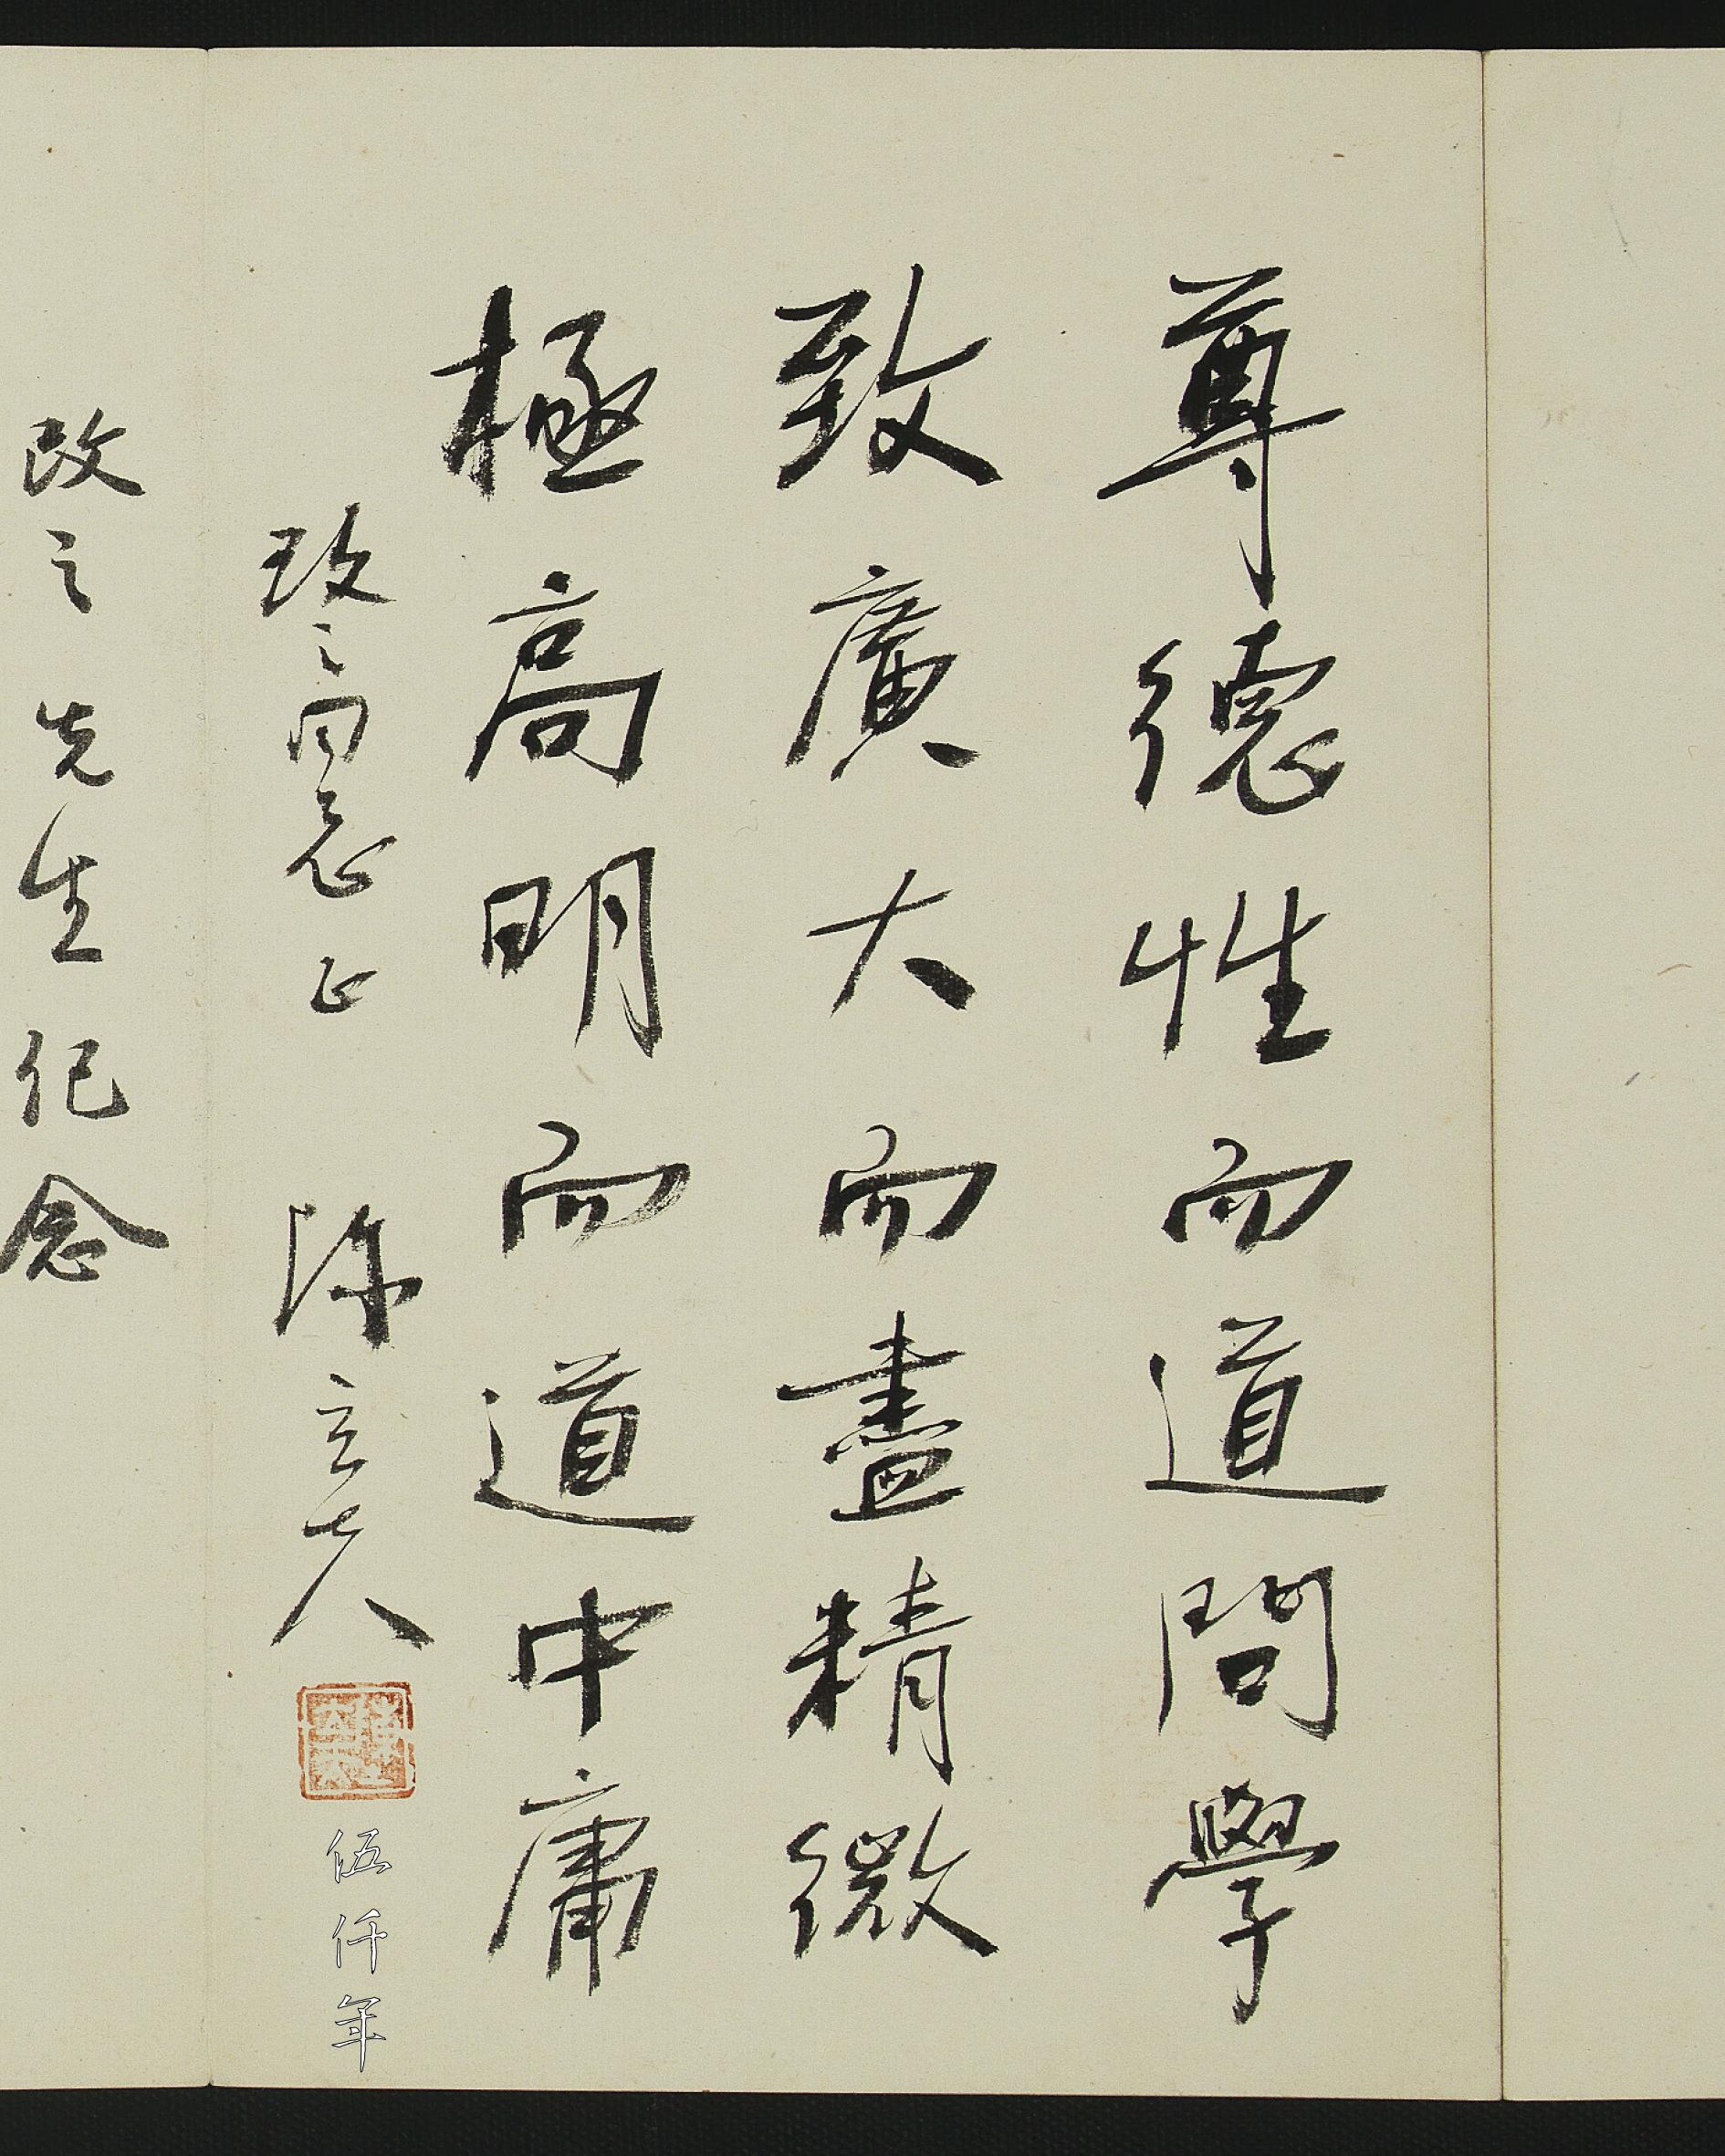 尊德性而道問學
致廣大而盡精微
極高明而道中庸
玫之同志正 陳立夫
伍仟年
改之先生紀念